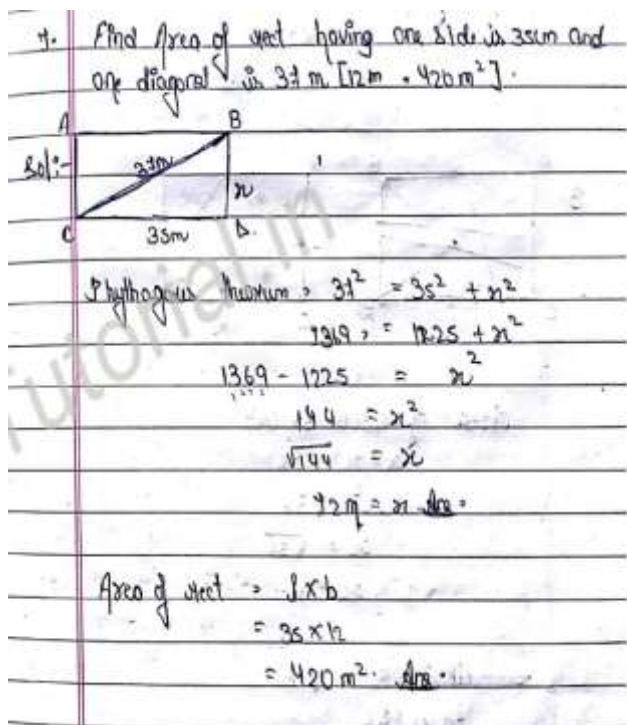 7. Find Area of rect having one side is 35m and
one diagonal is 37 m [12m . 420m²].
A B
Sol:- 37m
x
C 35m D
Phythagorus theorum = 37² = 35² + x²
1369 = 1225 + x²
1369 - 1225 = x²
144 = x²
√144 = x
12m = x Ans.
Area of rect = l × b
= 35 × 12
= 420 m². Ans.
Tutorial.in